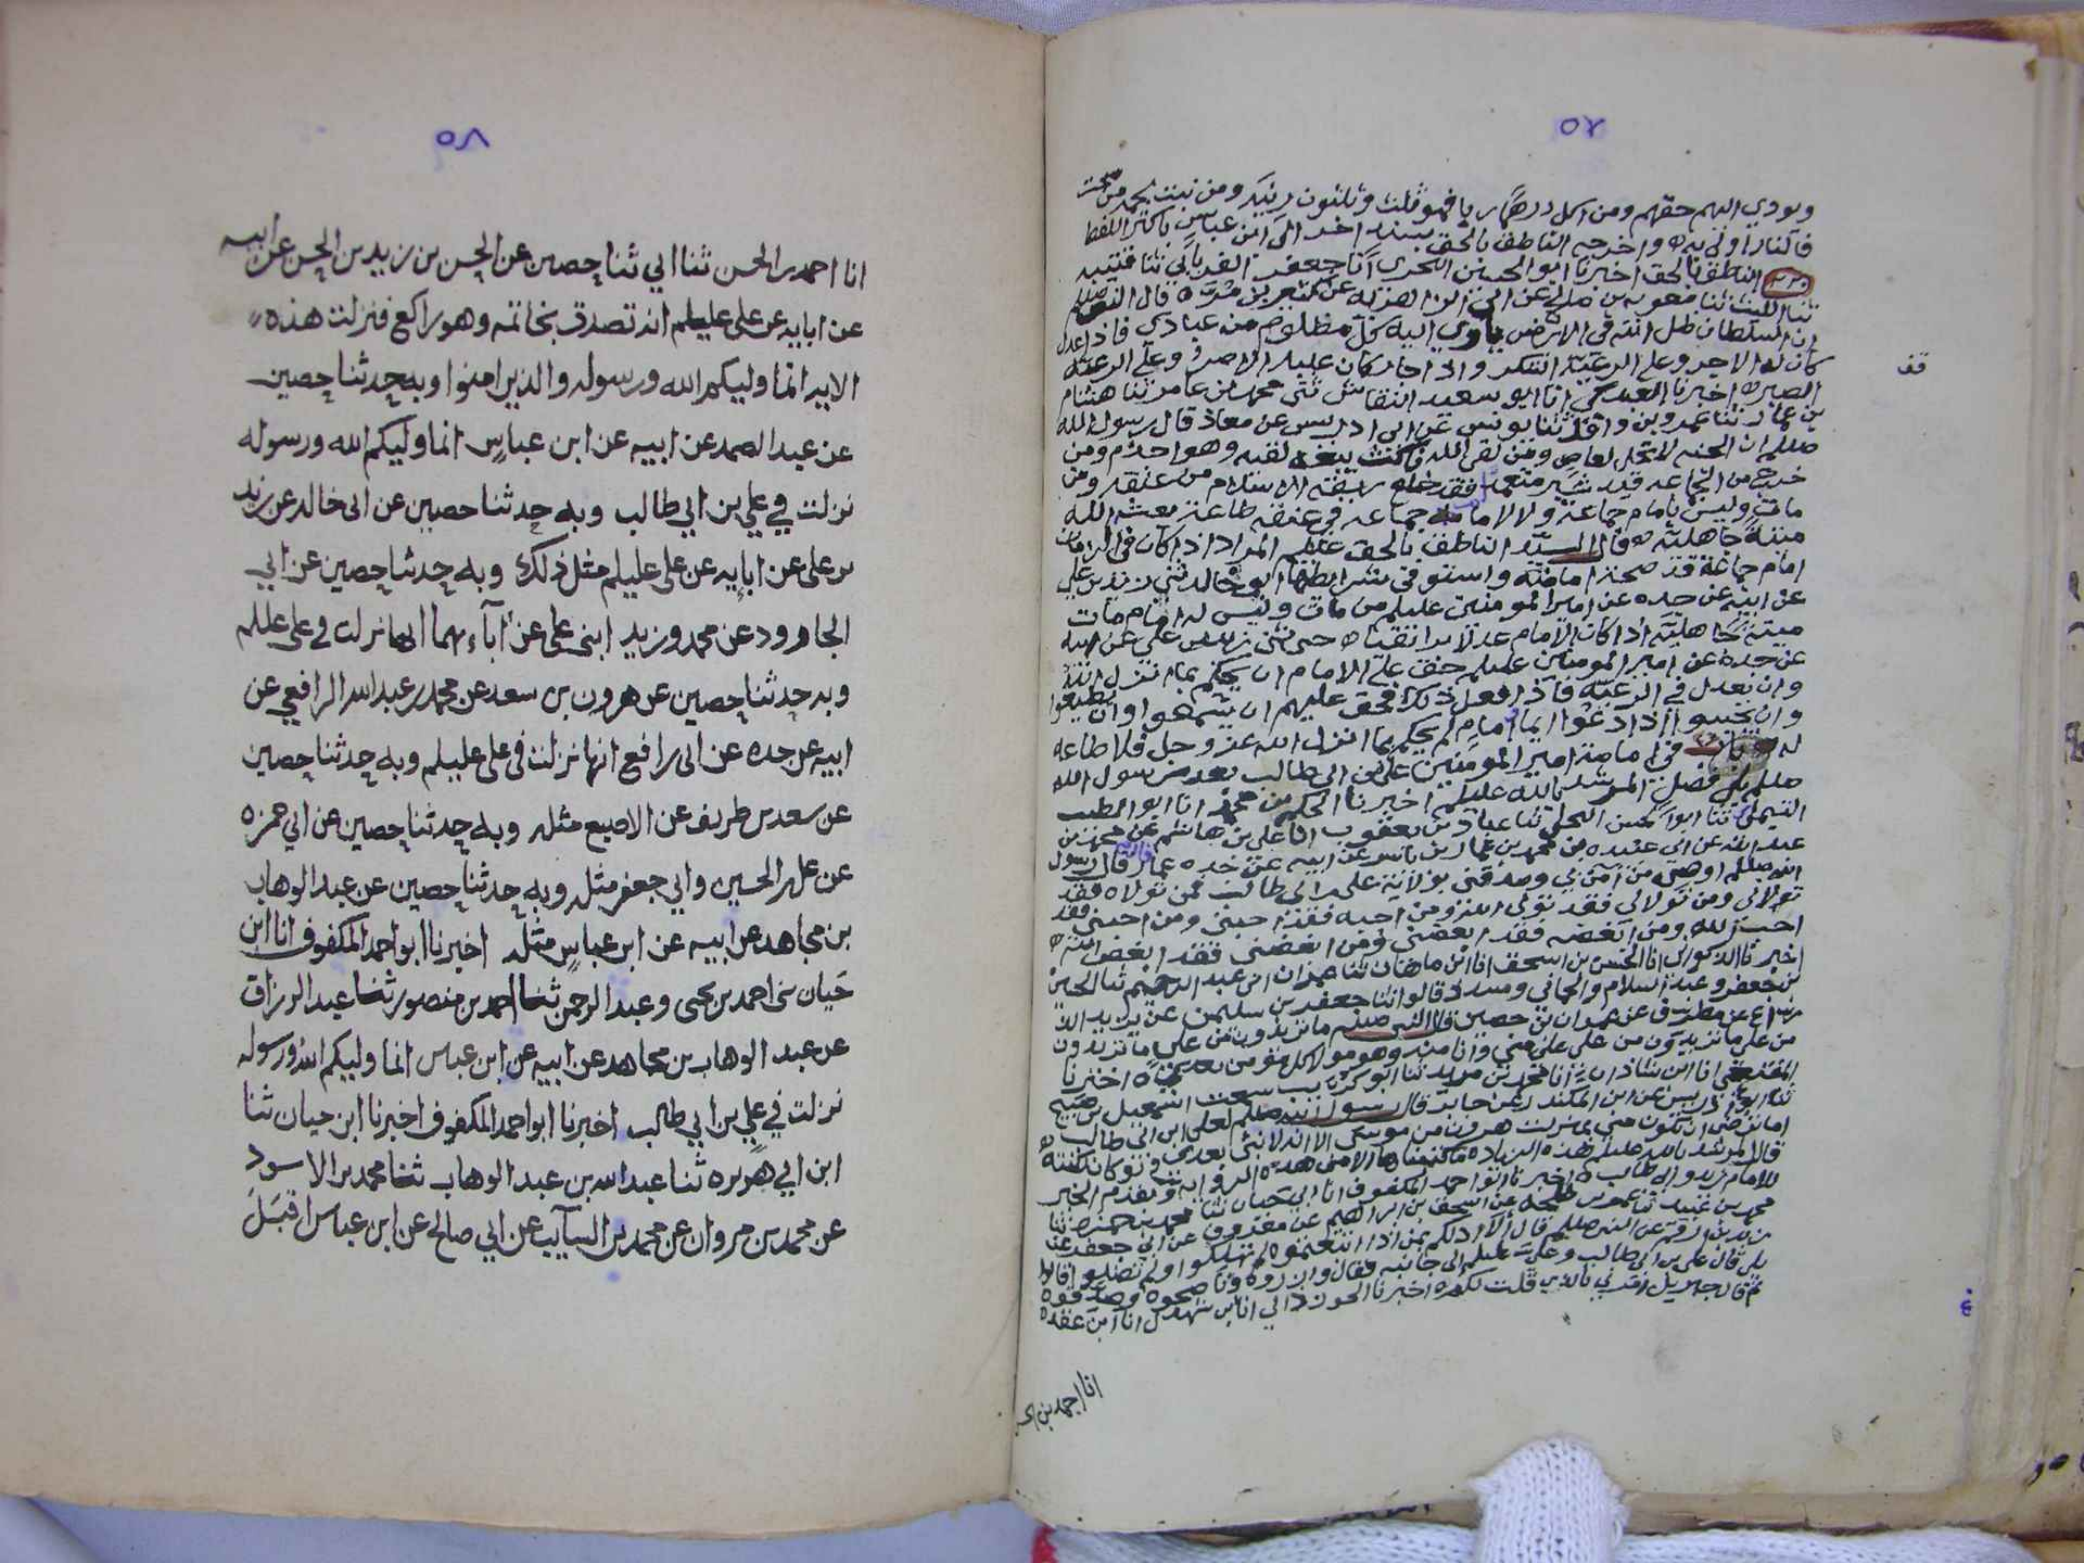 ٥٧
ويودي اليهم حقهم ومن اكل درهما ربا فهو ثلث وثلثون زنية ومن نبت لحمه من سحت
فالنار اولى به واخرجه الناطق بالحق بسند اخر الى ابن عباس باكثر اللفظ
الناطق بالحق اخبرنا ابو الحسين البحري انا جعفر الفريابي ثنا قتيبه
ثنا الليث ثنا معويه بن صالح عن ابي الزاهريه عن كثير بن مره قال النبي صللم
ان السلطان ظل الله في الارض ياوي اليه كل مظلوم من عبادي فاذا عدل
كان له الاجر وعلى الرعية الشكر واذا جار كان عليه الاصر وعلى الرعية
قف
الصبر اخبرنا العبدكي انا ابو سعيد النقاش ثنى محمد بن عامر ثنا هشام
بن عمار ثنا عمرو بن واقد ثنا يونس عن ابي ادريس عن معاذ قال رسول الله
صللم ان الجنه لا تحل لعاص ومن لقي الله ناكث بيعه لقيه وهو اجذم ومن
خرج من الجماعه قيد شبر متعمدا فقد خلع ربقة الاسلام من عنقه ومن
مات وليس بامام جماعة ولا لامامه جماعه في عنقه طاعة بعثه الله
ميتة جاهلية قال السيد الناطق بالحق عليلم المراد اذا كان في الزمان
امام جماعة قد صحة امامته واستوفى شرايطها ابو خالد ثنى زيد بن علي
عن ابيه عن جده عن امير المومنين عليلم من مات وليس له امام مات
ميتة جاهلية اذا كان الامام عدلا برا تقيا ثنى زيد بن علي عن ابيه
عن جده عن امير المومنين عليلم حق على الامام ان يحكم بما انزل الله
وان يعدل في الرعية فاذا فعل ذلك فحق عليهم ان يسمعوا وان يطيعوا
وان يجيبوا اذا دعوا ايما امام لم يحكم بما انزل الله عز وجل فلا طاعه
له في امامة امير المومنين علي بن ابي طالب بعد رسول الله
صللم بلى فصل المرشد بالله عليلم اخبرنا الحكم بن محمد انا ابو الطيب
التيملي ثنا ابو الحسن البجلي ثنا عباد بن يعقوب انا علي بن هاشم عن محمد بن
عبد الله عن ابي عبيده بن محمد بن عمار بن ياسر عن ابيه عن جده عمار قال قال رسول
الله صللم اوصي من آمن بي وصدقني بولاية علي بن ابي طالب فمن تولاه فقد
تولاني ومن تولاني فقد تولى الله ومن احبه فقد احبني ومن احبني فقد
احب الله ومن ابغضه فقد ابغضني ومن ابغضني فقد ابغض الله
اخبرنا الذكواني انا الحسن بن اسحق انا ابن ماهان ثنا عمران ابن عبد الرحيم ثنا الحسن
بن جعفر وعبد السلام والحماني ومسدد قالوا ثنا جعفر بن سليمن عن يزيد الر
شك عن مطرف عن عمران بن حصين قال النبي صللم ما تريدون من علي ما تريدون
من علي ما تريدون من علي علي مني وانا منه وهو مولا كل مومن بعدي اخبرنا
المقنعي انا ابن شاذان انا محمد بن مزيد ثنا ابو كريب سمعت اسمعيل بن صبيح
ثنا ابو ادريس عن ابن المكندر عن جابر قال رسول الله صللم لعلي ابن ابي طالب
اما ترضى ان تكون مني بمنزلت هرون من موسى الا انه لا نبي بعدي ولو كان لكنته
قال المرشد بالله عليلم هذه الزياده ماكتبناها الا من هذه الروايه وتقدم الخبر
للامام زيد وابي طالب اخبرنا ابو احمد المكفوف انا ابن حيان ثنا محمد بن حمزه ثنا
محمد بن عبيد ثنا عمر بن طلحه عن اسحق بن ابراهيم عن معروف عن ابي جعفر عن
زيد بن ارقم عن النبي صللم قال الا ادلكم بمن اذا اتبعتموه لم تهلكوا ولم تضلوا قالوا
بلى قال علي بن ابي طالب وعلي عليلم الى جانبه فقال وازروه وناصحوه وصدقوه
ثم قال جبريل امرني بالذي قلت لكم اخبرنا الجوزداني انا ابن شهدل انا ابن عقده
انا احمد بن الحسن
٥٨
انا احمد بن الحسن ثنا ابي ثنا حصين عن الحسن بن زيد بن الحسن عن ابيه
عن ابايه عن علي عليلم انه تصدق بخاتمه وهو راكع فنزلت هذه
الايه انما وليكم الله ورسوله والذين امنوا وبه حدثنا حصين
عن عبد الصمد عن ابيه عن ابن عباس انما وليكم الله ورسوله
نزلت في علي بن ابي طالب وبه حدثنا حصين عن ابي خالد عن زيد
بن علي عن ابايه عن علي عليلم مثل ذلك وبه حدثنا حصين عن ابي
الجارود عن محمد وزيد ابنى علي عن آباءهما انها نزلت في علي عللم
وبه حدثنا حصين عن هرون بن سعد عن محمد بن عبد الله الرافعي عن
ابيه عن جده عن ابي رافع انها نزلت في علي عليلم وبه حدثنا حصين
عن سعد بن طريف عن الاصبع مثله وبه حدثنا حصين عن ابي حمزه
عن علي بن الحسين وابي جعفر مثله وبه حدثنا حصين عن عبد الوهاب
بن مجاهد عن ابيه عن ابن عباس مثله اخبرنا ابو احمد المكفوف انا ابن
حيان ثنى احمد بن يحيى وعبد الرحمن ثنا احمد بن منصور ثنا عبد الرزاق
عن عبد الوهاب بن مجاهد عن ابيه عن ابن عباس انما وليكم الله ورسوله
نزلت في علي بن ابي طالب اخبرنا ابو احمد المكفوف اخبرنا ابن حيان ثنا
ابن ابي هريره ثنا عبد الله بن عبد الوهاب ثنا محمد بن الاسود
عن محمد بن مروان عن محمد بن السآيب عن ابي صالح عن ابن عباس اقبل